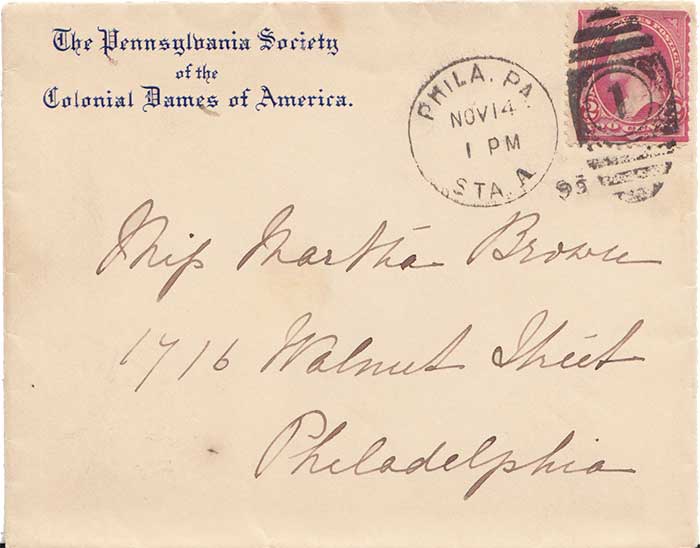 The Pennsylvania Society
of the
Colonial Dames of America.
PHILA. PA.
NOV 14
1 PM
STA. A
95
1
TWO CENTS
Miss Martha Brown
1716 Walnut Street
Philadelphia